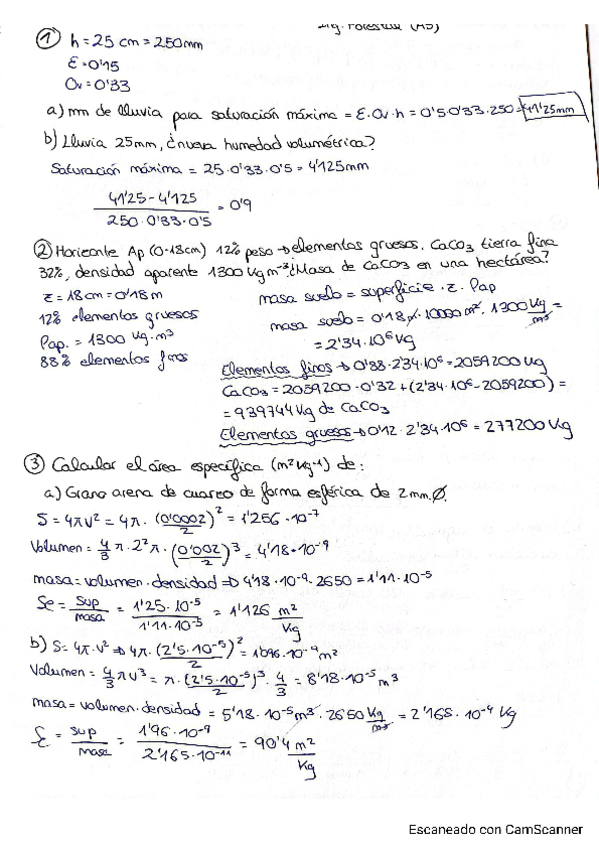 Ing. Forestal (A5)
① h = 25 cm = 250mm
ε = 0'15
θv = 0'33
a) mm de lluvia para saturación máxima = ε.θv.h = 0'5.0'33.250 = 41'25mm
b) Lluvia 25mm, ¿nueva humedad volumétrica?
Saturación máxima = 25.0'33.0'5 = 4'125mm
41'25 - 4'125
250.0'33.0'5 = 0'9
② Horizonte Ap (0-18cm) 12% peso → elementos gruesos. CaCO3 tierra fina
32%, densidad aparente 1300 Kg m⁻³ ¿Masa de CaCO3 en una hectárea?
z = 18cm = 0'18m
12% elementos gruesos
Pap. = 1300 Kg.m³
88% elementos finos
masa suelo = superficie . z . Pap
masa suelo = 0'18 m . 10000 m² . 1300 Kg/m³ =
= 2'34.10⁶ Kg
Elementos finos → 0'88.2'34.10⁶ = 2059200 Kg
CaCO3 = 2059200.0'32 + (2'34.10⁶ - 2059200) =
= 939744 Kg de CaCO3
Elementos gruesos → 0'12.2'34.10⁶ = 277200 Kg
③ Calcular el área específica (m² Kg⁻¹) de:
a) Grano arena de cuarzo de forma esférica de 2mm.Ø.
S = 4πr² = 4π.(0'0002/2)² = 1'256.10⁻⁷
Volumen = 4/3 π.2²π.(0'002/2)³ = 4'18.10⁻⁹
masa = volumen.densidad ⇒ 4'18.10⁻⁹.2650 = 1'11.10⁻⁵
Se = sup/masa = 1'25.10⁻⁵/1'11.10⁻⁵ = 1'126 m²/Kg
b) S = 4π.r² ⇒ 4π.(2'5.10⁻⁵/2)² = 1'96.10⁻⁹ m²
Volumen = 4/3 πr³ = π.(2'5.10⁻⁵/2)³.4/3 = 8'18.10⁻¹⁵ m³
masa = volumen.densidad = 5'18.10⁻⁵ m³.2650 Kg/m³ = 2'165.10⁻⁴ Kg
ε = sup/masa = 1'96.10⁻⁹/2'165.10⁻¹¹ = 90'4 m²/Kg
Escaneado con CamScanner